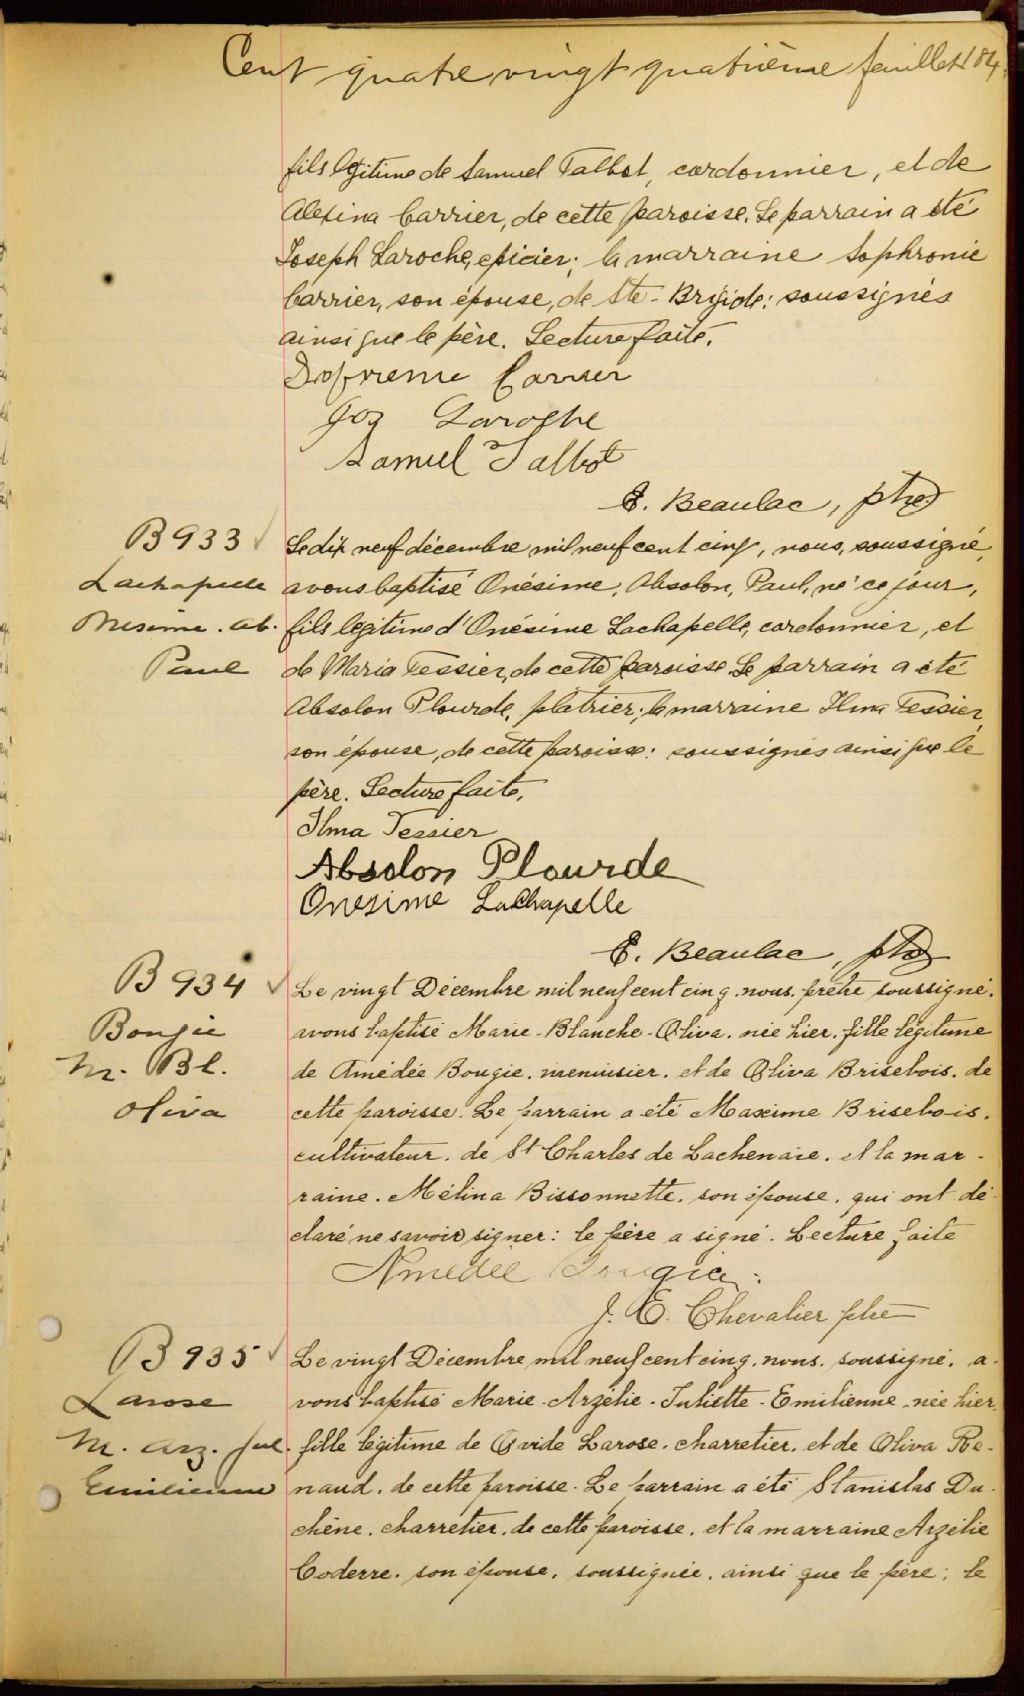 Cent quatre vingt quatrième feuillet 184
fils légitime de Samuel Talbot, cordonnier, et de
Alexina Carrier, de cette paroisse. Le parrain a été
Joseph Laroche, epicier; la marraine Sophronie
Carrier, son épouse, de Ste-Brigide: soussignés
ainsi que le père. Lecture faite.
Carrier
Jos Laroche
Samuel Talbot
E. Beaulac, ptre
B 933
Lachapelle
Onesime. Ab.
Paul
Le dix neuf décembre mil neuf cent cinq, nous, soussigné,
avons baptisé Onésime, Absolon, Paul, né ce jour,
fils légitime d'Onésime Lachapelle, cordonnier, et
de Maria Tessier, de cette paroisse. Le parrain a été
Absolon Plourde, plâtrier; la marraine Ilma Tessier,
son épouse, de cette paroisse: soussignés ainsi que le
père. Lecture faite.
Ilma Tessier
Absolon Plourde
Onesime LaChapelle
E. Beaulac, ptre
B 934
Bougie
M. Bl.
Oliva
Le vingt Décembre mil neuf cent cinq. nous. prêtre soussigné.
avons baptisé Marie-Blanche-Oliva. née hier. fille légitime
de Amédée Bougie. menuisier. et de Oliva Brisebois. de
cette paroisse. Le parrain a été Maxime Brisebois.
cultivateur. de St Charles de Lachenaie. et la mar-
raine. Mélina Bissonnette. son épouse. qui ont dé-
claré ne savoir signer: le père a signé. Lecture faite
Amédée Bougie
J. E. Chevalier ptre
B 935
Larose
M. Arz. Jul.
Emilienne
Le vingt Décembre mil neuf cent cinq. nous. soussigné. a-
vons baptisé Marie-Arzélie-Juliette-Emilienne. née hier.
fille légitime de Ovide Larose. charretier. et de Oliva Re-
naud. de cette paroisse. Le parrain a été Stanislas Du-
chêne. charretier. de cette paroisse. et la marraine Arzélie
Coderre. son épouse. soussignée. ainsi que le père; le